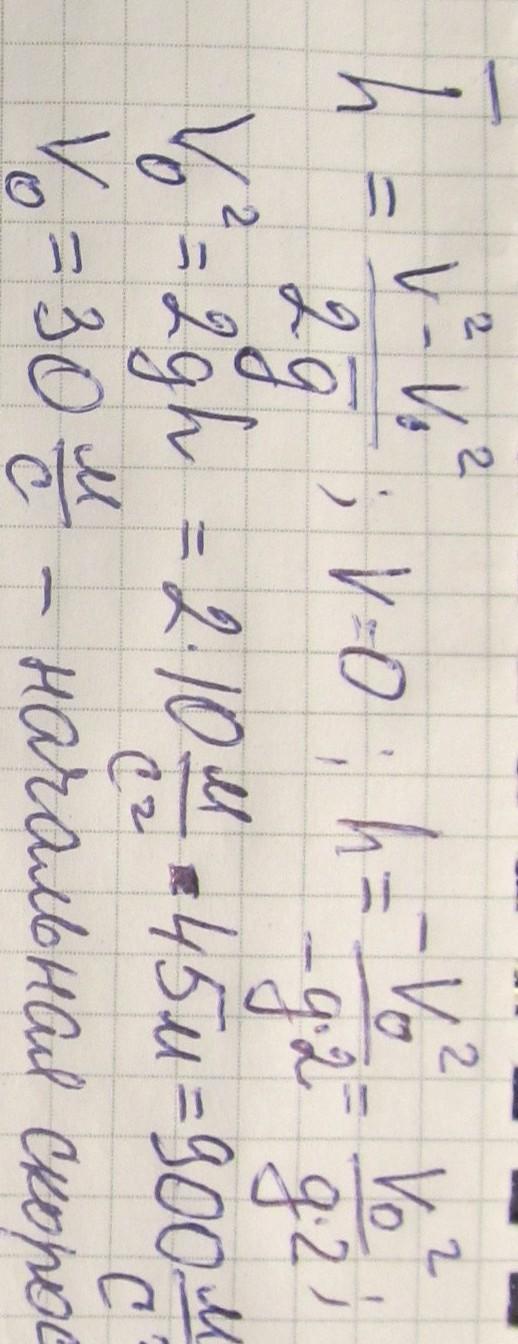 h̄ = (V² - V₀²) / 2ḡ ; V = 0 ; h = -V₀² / -g·2 = V₀² / g·2 ;
V₀² = 2gh = 2·10 м/с² · 45м = 900 м
V₀ = 30 м/с - начальная